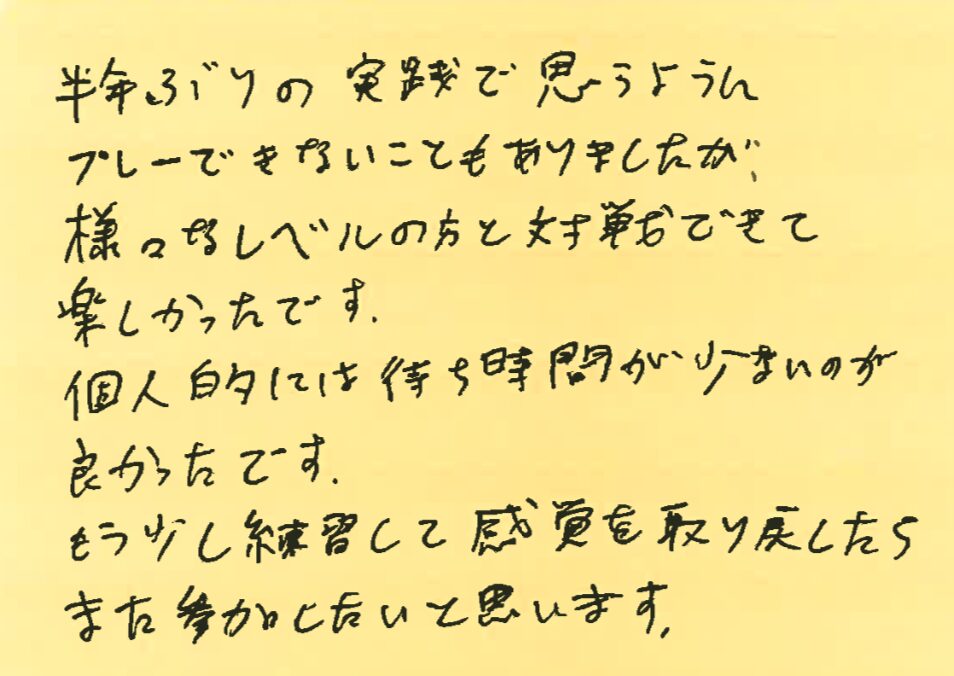 半年ぶりの実践で思うように
プレーできないこともありましたが、
様々なレベルの方と対戦できて
楽しかったです.
個人的には待ち時間が少ないのが
良かったです.
もう少し練習して感覚を取り戻したら
また参加したいと思います.